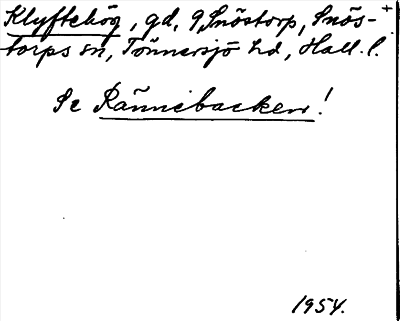 Klyftehög, gd, 9, Snöstorp, Snös- +
torps sn, Tönnersjö hd, Hall. l.
Se Rännebacken!
1954.